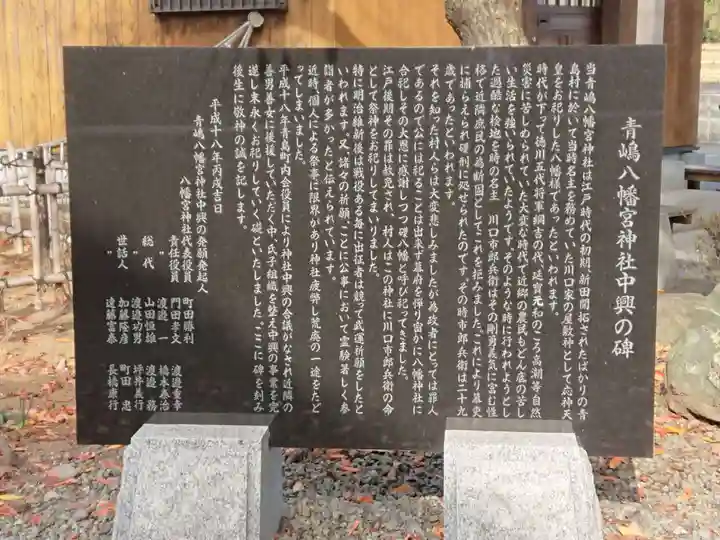 青嶋八幡宮神社中興の碑
当青嶋八幡宮神社は江戸時代の初期、新田開拓されたばかりの青
島村に於いて当時名主を務めていた川口家の屋敷神として応神天
皇をお祀りした八幡様であったといわれます。
時代が下って徳川五代将軍綱吉の代、延寶元和のころ高潮等自然
災害に苦しめられていた大変な時代で近郷の農民もどん底の苦し
い生活を強いられていたようです。そのような時に行われようとし
た過酷な検地を時の名主 川口市郎兵衛はその剛勇義気に富む性
格で近隣庶民の為断固としてこれを拒みました。これにより幕吏
に捕らえられ磔刑に処せられたのです。その時市郎兵衛は二十九
歳であったといわれます。
それを知った村人らは大変悲しみましたが為政者にとっては罪人
であるので公には祀ることは出来ず幕府を憚り密かに八幡神社に
合祀しその大恩に感謝しつつ磔八幡と呼び祀ってきました。
江戸後期その罪は赦免され、村人はこの神社に川口市郎兵衛の命
として祭神をお祀りしてまいりました。
特に明治維新後は戦役ある毎に出征者は競って武運祈願をしたと
いわれます。又、諸々の祈願、ことに公事において霊験著しく参
詣者が多かったと伝えられています。
近時、個人による祭事に限界があり神社疲弊し荒廃の一途をたど
ってしまいました。
平成十八年青島町内会役員により神社中興の合議がなされ近隣の
善男善女に後援していただく中、氏子組織を整え中興の事業を完
遂し末永くお祀りしていく礎といたしました。ここに碑を刻み
後生に敬神の誠を記します。
平成十八年丙戌吉日
青嶋八幡宮神社中興の発願発起人
八幡宮神社代表役員 町田勝利
責任役員 門田孝文 渡邉重幸
〃 渡邉一 橋本泰治
総代 山田恒雄 渡邉務
〃 渡邉功男 坪井良行
世話人 加藤隆彦 町田忠
〃 遠藤富泰 長橋康行